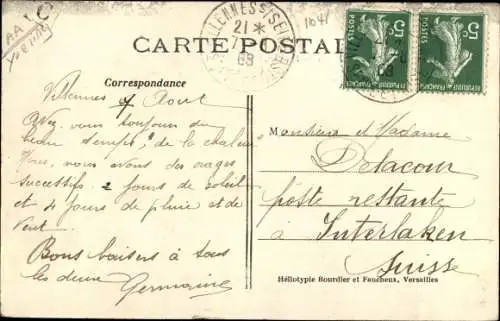 C
AA
VILLENNES S/ SEINE
21 *
7
08
1641
5c 5c
POSTES POSTES
REPUBLIQUE FRANÇAISE REPUBLIQUE FRANÇAISE
CARTE POSTALE
Correspondance
Villennes 7 Aout
Avez vous toujours du
beau temps, de la chaleur
Nous, nous avons des orages
successifs. 2 jours de soleil
et 4 jours de pluie et de
vent.
Bons baisers à vous
les deux
Germaine
Monsieur et Madame
Delacour
poste restante
à Interlaken
Suisse
Héliotypie Bourdier et Faucheux, Versailles